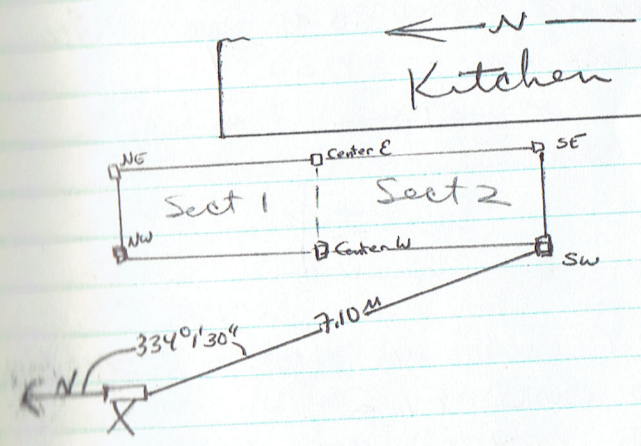 N
Kitchen
NE
Center E
SE
Sect 1
Sect 2
NW
Center W
SW
7.10 M
334°1'30"
N
X